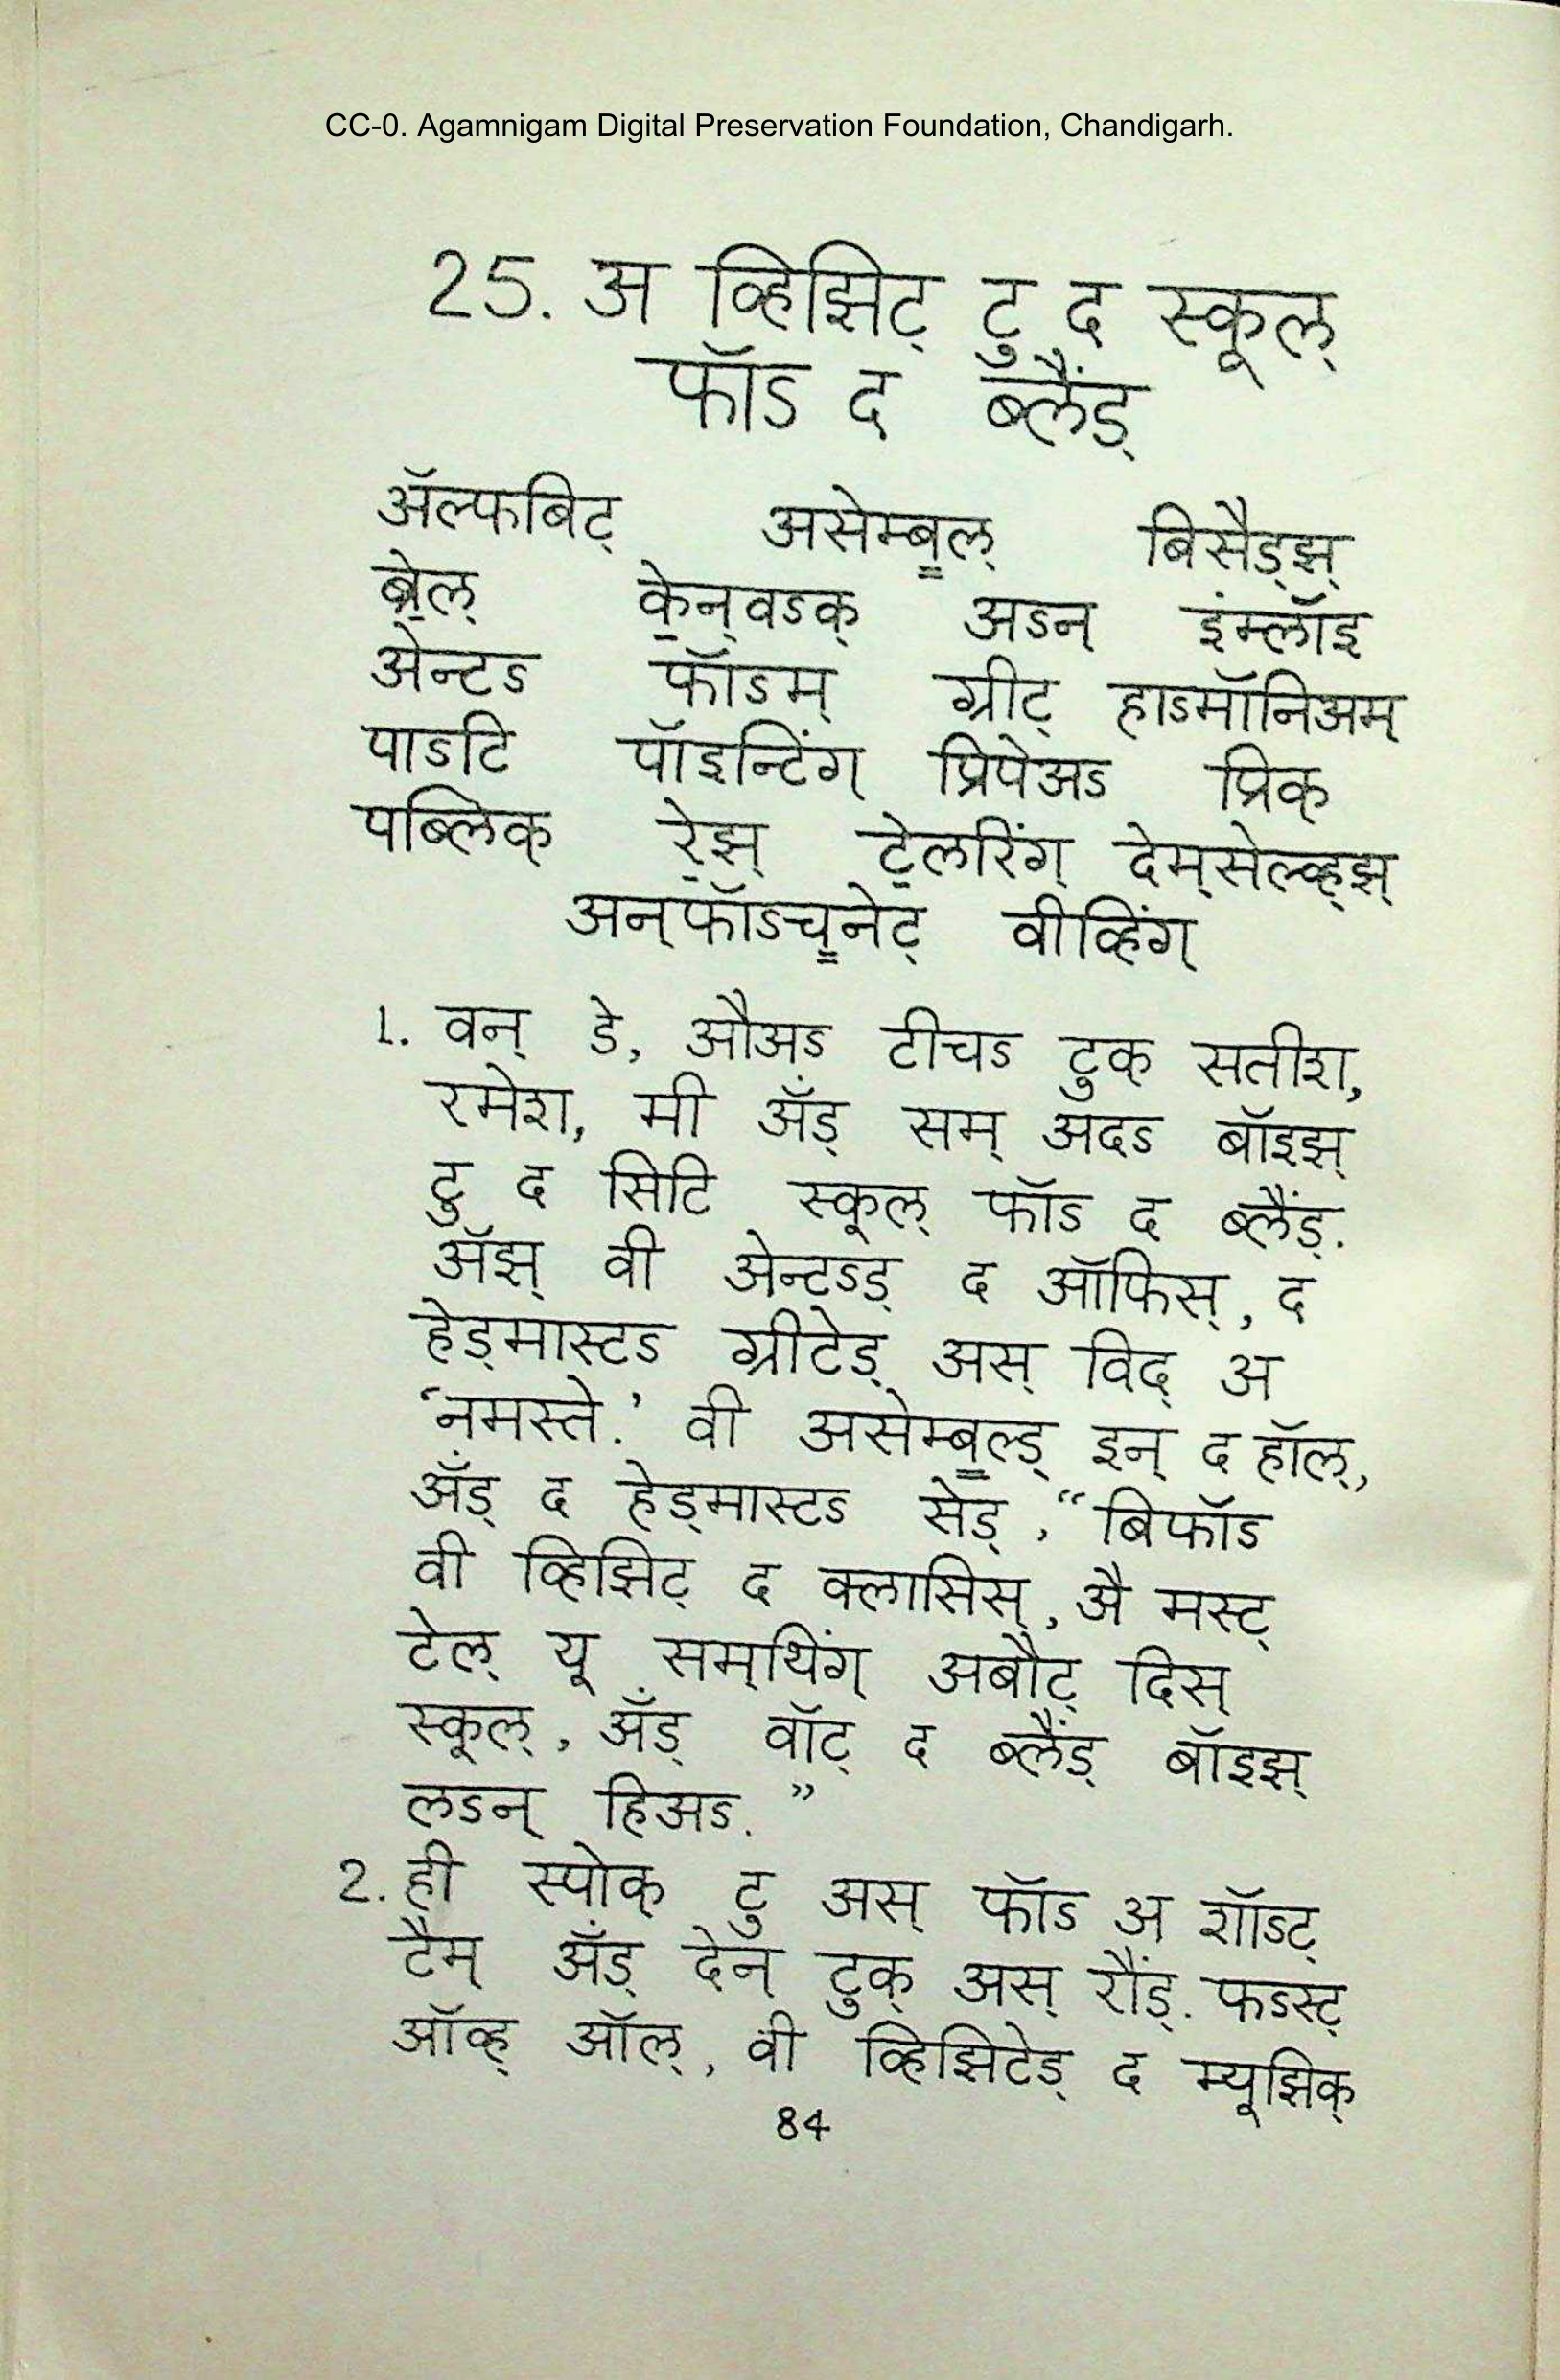 CC-0. Agamnigam Digital Preservation Foundation, Chandigarh.
25. अ व्हिझिट् टु द स्कूल्
फॉऽ द ब्लैंड्
अ‍ॅल्फबिट् असेम्ब॒ल् बिसैड्झ्
ब्रे॒ल् के॒न्‌वऽक् अऽन् इंम्लॉइ
अेन्टऽ फॉऽम् ग्रीट् हाऽमॉनिअम्
पाऽटि पॉइन्टिंग् प्रिपेअऽ प्रिक्
पब्लिक् रे॒झ् टे॒लरिंग् देम्‌सेल्व्ह्झ्
अन्‌फॉऽच॒नेट् वीव्हिंग्
1. वन् डे, औअऽ टीचऽ टुक् सतीश,
रमेश, मी अ‍ँड् सम् अदऽ बॉइझ्
टु द सिटि स्कूल् फॉऽ द ब्लैंड्.
अ‍ॅझ् वी अेन्टऽड् द ऑफिस्, द
हेड्‌मास्टऽ ग्रीटेड् अस् विद् अ
‘नमस्ते.’ वी असेम्ब॒ल्ड् इन् द हॉल्,
अ‍ँड् द हेड्‌मास्टऽ सेड्, “बिफॉऽ
वी व्हिझिट् द क्लासिस्, अै मस्ट्
टेल् यू सम्‌थिंग् अबौट् दिस्
स्कूल्, अ‍ँड् वॉट् द ब्लैंड् बॉइझ्
लऽन् हिअऽ.”
2. ही स्पोक् टु अस् फॉऽ अ शॉऽट्
टैम् अ‍ँड् देन् टुक् अस् रौंड्. फऽस्ट्
ऑव्ह् ऑल्, वी व्हिझिटेड् द म्यूझिक्
84